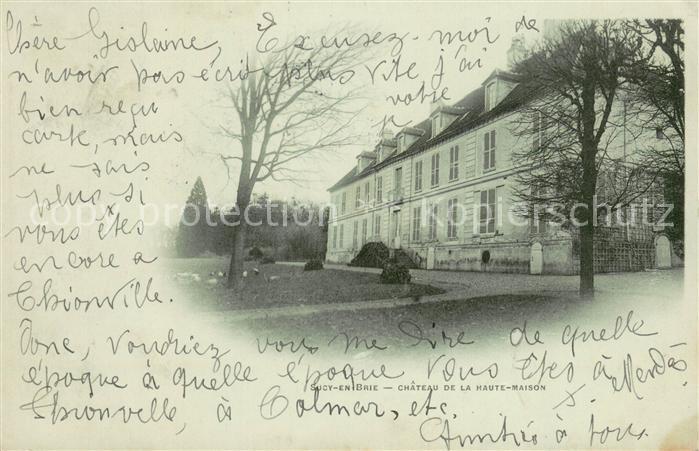 Chère Gislaine, Excusez-moi de
n'avoir pas écrit plus vite, j'ai
bien reçu votre
carte, mais
ne sais
plus si
vous êtes
encore à
Thionville.
Donc, voudriez vous me dire de quelle
époque à quelle époque vous êtes à
Thionville, à Colmar, etc.
Amitiés à tous.
SUCY-EN-BRIE — CHÂTEAU DE LA HAUTE-MAISON
copyright Kopierschutz